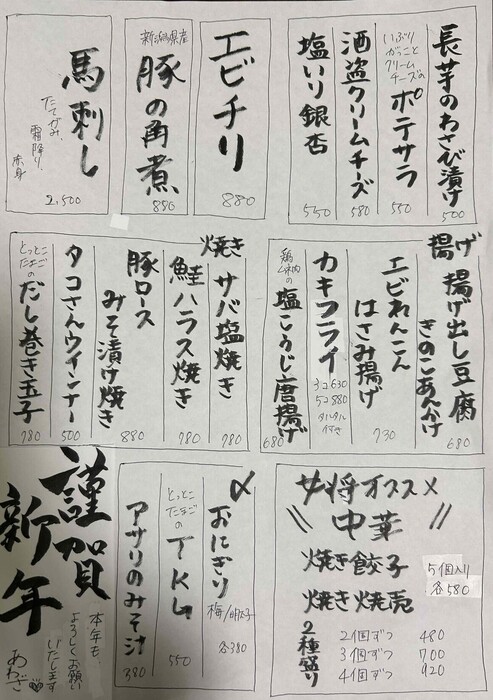 長芋のわさび漬け
500
いぶりがっことクリームチーズの
ポテサラ
550
酒盗クリームチーズ
580
塩いり銀杏
550
エビチリ
880
新潟県産
豚の角煮
880
馬刺し
たてがみ、霜降り、赤身
2,500
揚げ
揚げ出し豆腐
きのこあんかけ
680
エビれんこん
はさみ揚げ
730
カキフライ
3コ 630
5コ 880
タルタル付き
塩こうじ唐揚げ
680
焼き
サバ塩焼き
780
鮭ハラス焼き
780
豚ロース
みそ漬け焼き
880
タコさんウインナー
500
とっとこたまごの
だし巻き玉子
780
女将オススメ
中華
焼き餃子
焼き焼売
5個入り
各580
2種盛り
2個ずつ 480
3個ずつ 700
4個ずつ 920
〆
おにぎり
梅/明太子
各380
とっとこたまごの
TKG
550
アサリのみそ汁
380
謹賀
新年
本年も
よろしくお願い
いたします